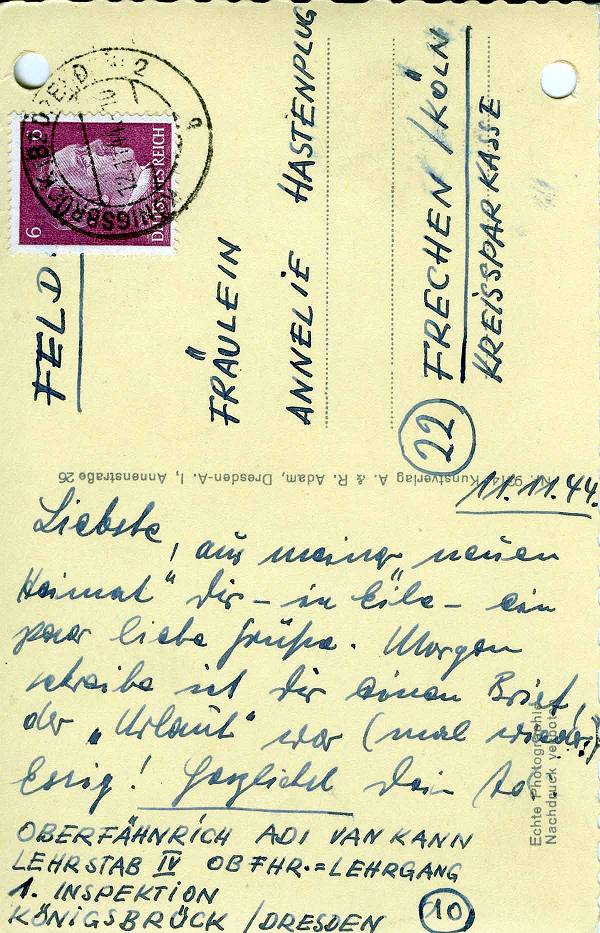 FELD
FRÄULEIN
ANNELIE HASTENPLUG
FRECHEN/KÖLN
KREISSPARKASSE
22
6 6
DEUTSCHES REICH
KÖNIGSBRÜCK
Kunstverlag A. & R. Adam, Dresden-A. 1, Annenstraße 26
11.11.44.
Liebste,
aus meiner „neuen
Heimat" Dir – in Eile – ein
paar liebe Grüße. Morgen
schreibe ich Dir einen Brief,
der „Urlaub" war (mal wieder)
Essig! Herzlichst Dein Adi
OBERFÄHNRICH ADI VAN KANN
LEHRSTAB IV OBFHR.=LEHRGANG
1. INSPEKTION
KÖNIGSBRÜCK/DRESDEN
10
Echte Photographie
Nachdruck verboten